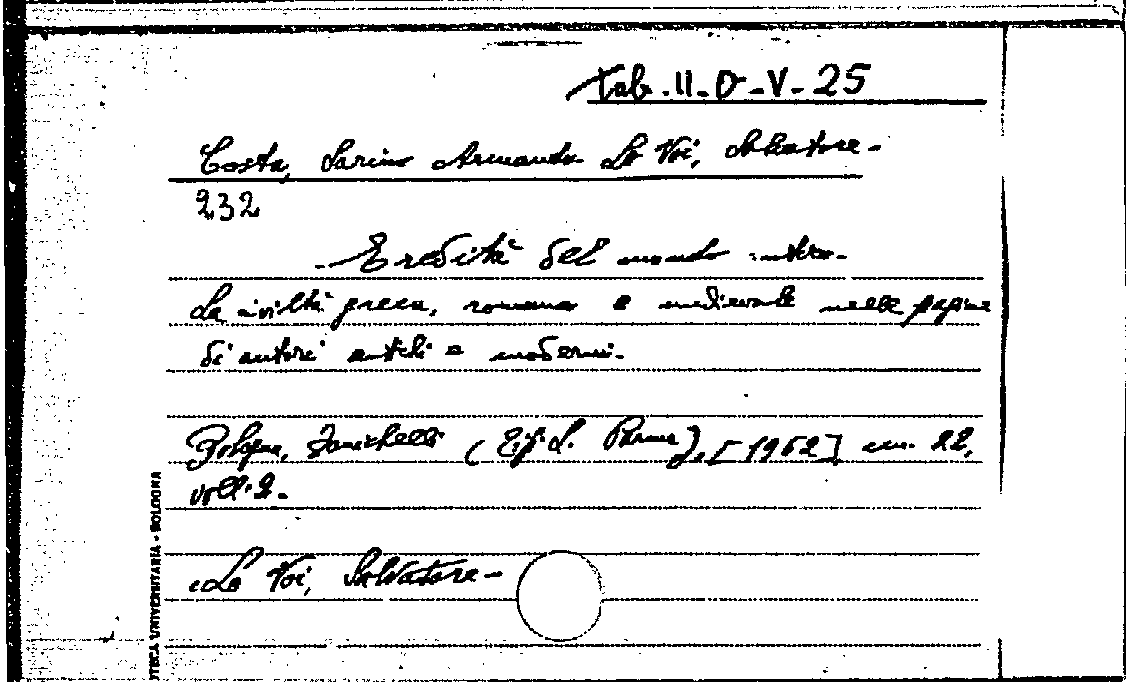 Tab. II. D. V. 25
Costa, Sarino Armando Lo Voi, Salvatore.
232
Eredità del mondo antico.
La civiltà greca, romana e medievale nelle pagine
di autori antichi e moderni.
Bologna, Zanichelli (Tip. L. Parma), [1962] cm. 22,
voll. 2.
Lo Voi, Salvatore
OTECA UNIVERSITARIA - BOLOGNA